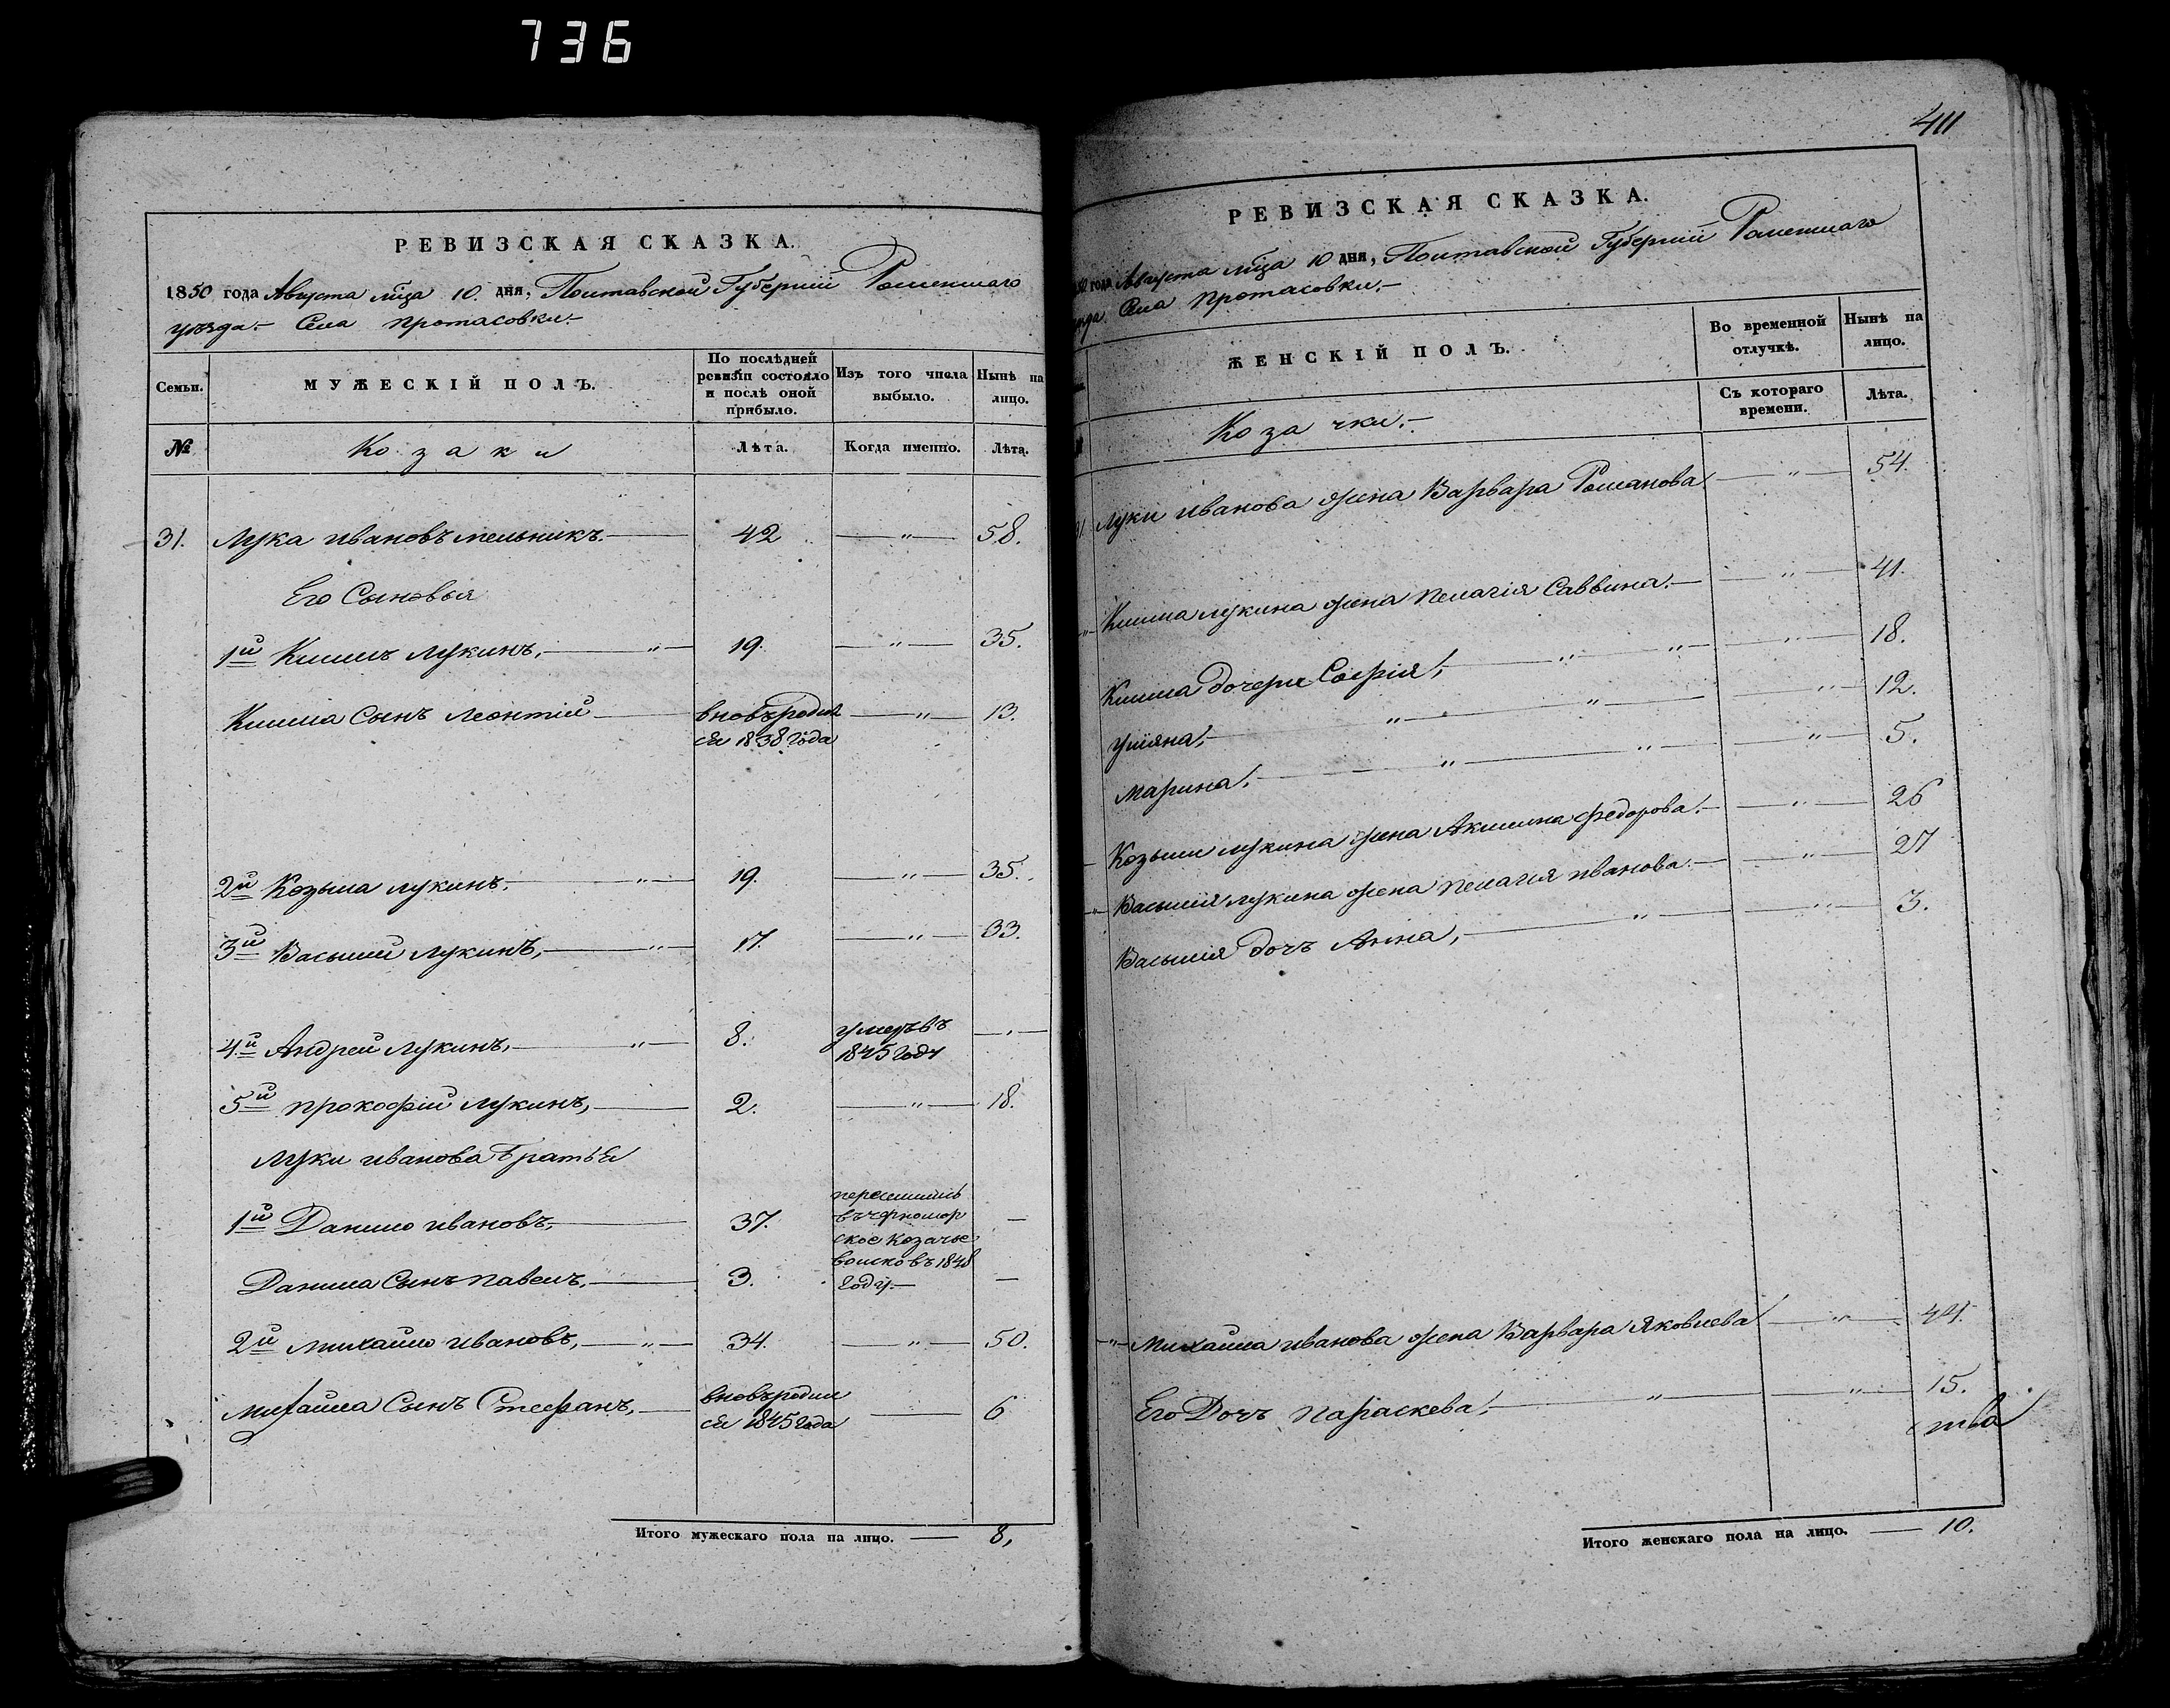 736
РЕВИЗСКАЯ СКАЗКА.
1850 года Августа мца 10. дня, Полтавской Губерніи Роменского
уезда.- Села Протасовки.-
Семьи.
МУЖЕСКІЙ ПОЛЪ.
По послѣдней ревизіи состояло и послѣ оной прибыло.
Изъ того числа выбыло.
Нынѣ на лицо.
№
Козаки
Лѣта.
Когда именно.
Лѣта.
31. Лука Ивановъ Мельникъ.— 42 —"— 58.
Его Сыновья
1й Климъ Лукинъ,—"— 19. —"— 35.
Клима Сынъ Леонтій — вновьродил —"— 13.
ся 1838 года
2й Козьма Лукинъ.—"— 19. —"— 35.
3й Василий Лукинъ,—"— 17. —"— 33.
4й Андрей Лукинъ,—"— 8. умеръ въ —"—
1845 году
5й Прокофій Лукинъ,— 2. —"— 18.
Луки Иванова Братья
1й Данило Ивановъ,— 37. переселились —
въ черномор
ское козачье
Данила Сынъ Павелъ,— 3. войско въ 1848 —
году.—
2й Михайло Ивановъ,—"— 34. —"— 50.
Михайла Сынъ Стефанъ,— вновьродил — 6
ся 1845 года
Итого мужескаго пола на лицо. — 8,
411
РЕВИЗСКАЯ СКАЗКА.
года Августа мца 10 дня, Полтавской Губерніи Роменского
Села Протасовки.-
ЖЕНСКІЙ ПОЛЪ.
Во временной отлучкѣ.
Нынѣ на лицо.
Съ котораго времени.
Лѣта.
Козачки.-
Луки Иванова жена Варвара Романова —"— 54.
—"— Клима Лукина жена Пелагія Саввина.— —"— 41.
Клима дочери Софія,—"—"— —"— 18.
Уліяна,—"—"— —"— 12.
Марина,—"—"— —"— 5.
— Козьмы Лукина жена Акилина Федорова.— —"— 26
—"— Василия Лукина жена Пелагія Иванова.— —"— 27
Василия дочъ Анна,—"— —"— 3.
—"— Михайла Иванова жена Варвара Яковлева —"— 44.
Его Дочъ Параскева,—"— —"— 15.
ства
Итого женскаго пола на лицо. — 10.